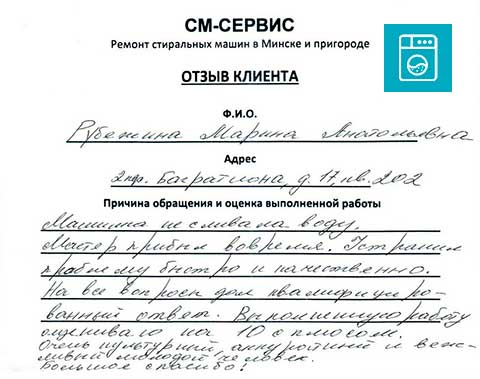 СМ-СЕРВИС
Ремонт стиральных машин в Минске и пригороде
ОТЗЫВ КЛИЕНТА
Ф.И.О.
Рубежина Марина Анатольевна
Адрес
2 пер. Багратиона, д. 17, кв. 202
Причина обращения и оценка выполненной работы
Машина не сливала воду.
Мастер прибыл вовремя. Устранил
проблему быстро и качественно.
На все вопросы дал квалифициро-
ванный ответ. Выполненную работу
оцениваю на 10 с плюсом.
Очень культурный, аккуратный и веж-
ливый молодой человек.
Большое спасибо!